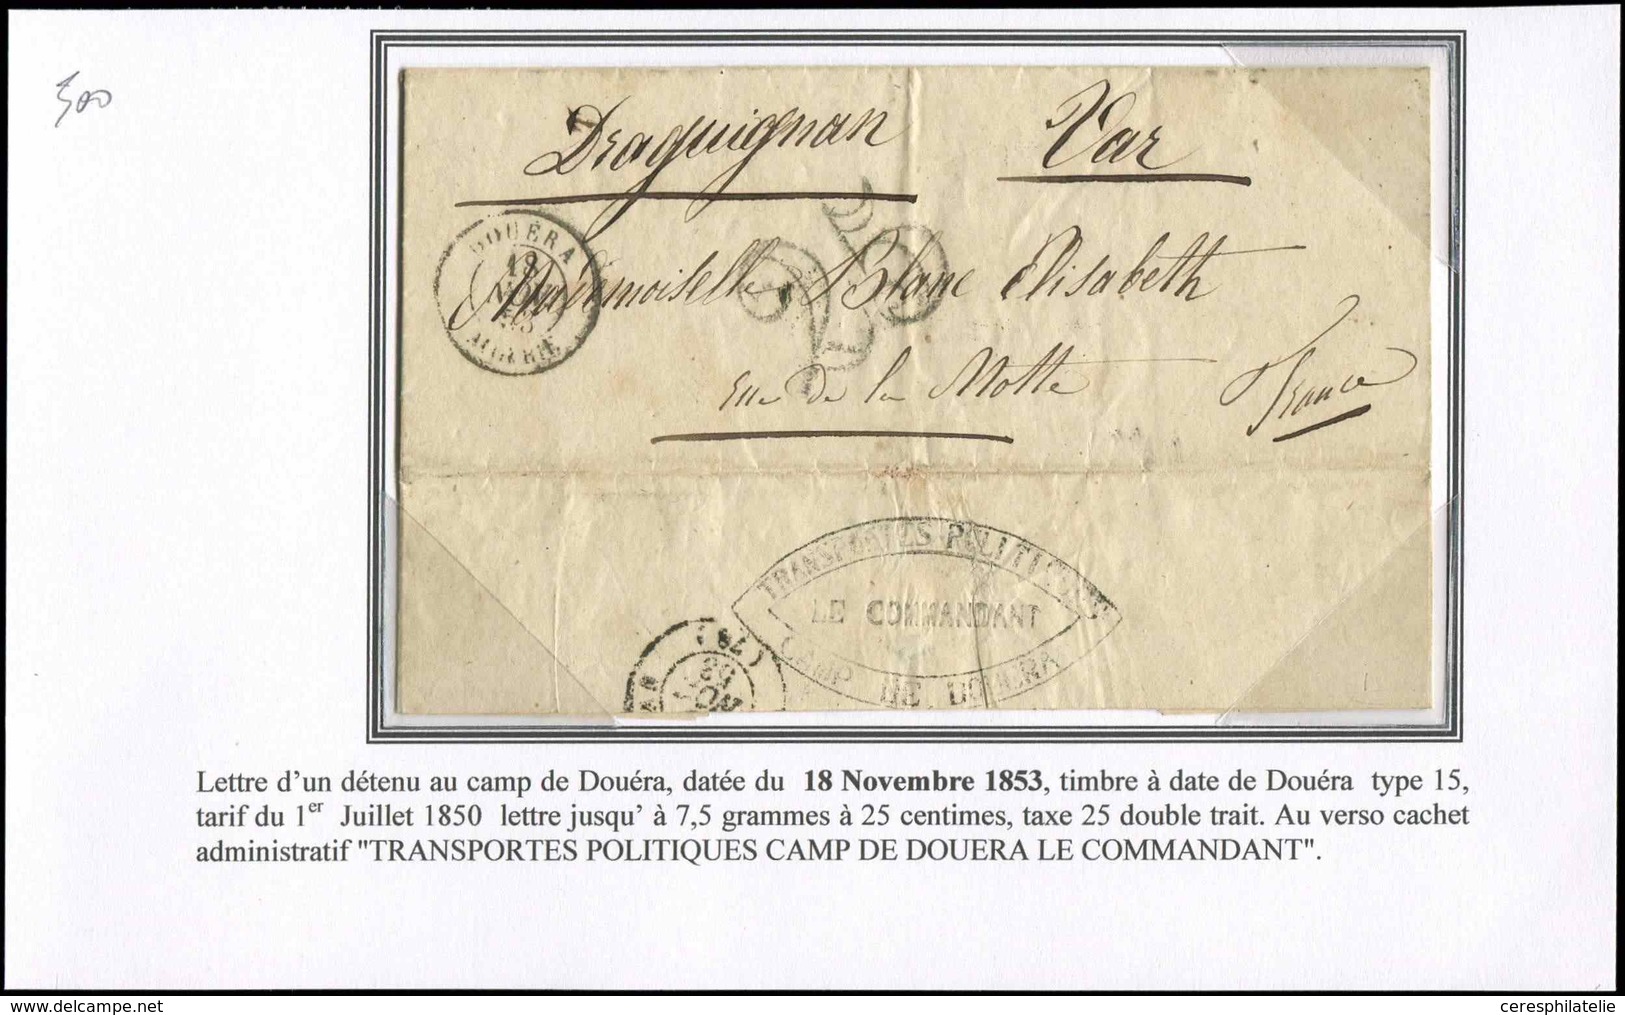 500
Draguignan Var
DOUÉRA
18
ALGÉRIE
25
Mademoiselle Blanc Elisabeth
rue de la Motte France
TRANSPORTES POLITIQUES
LE COMMANDANT
CAMP DE DOUERA
(78)
Lettre d'un détenu au camp de Douéra, datée du 18 Novembre 1853, timbre à date de Douéra type 15,
tarif du 1er Juillet 1850 lettre jusqu' à 7,5 grammes à 25 centimes, taxe 25 double trait. Au verso cachet
administratif "TRANSPORTES POLITIQUES CAMP DE DOUERA LE COMMANDANT".
delcampe.net
ceresphilatelie